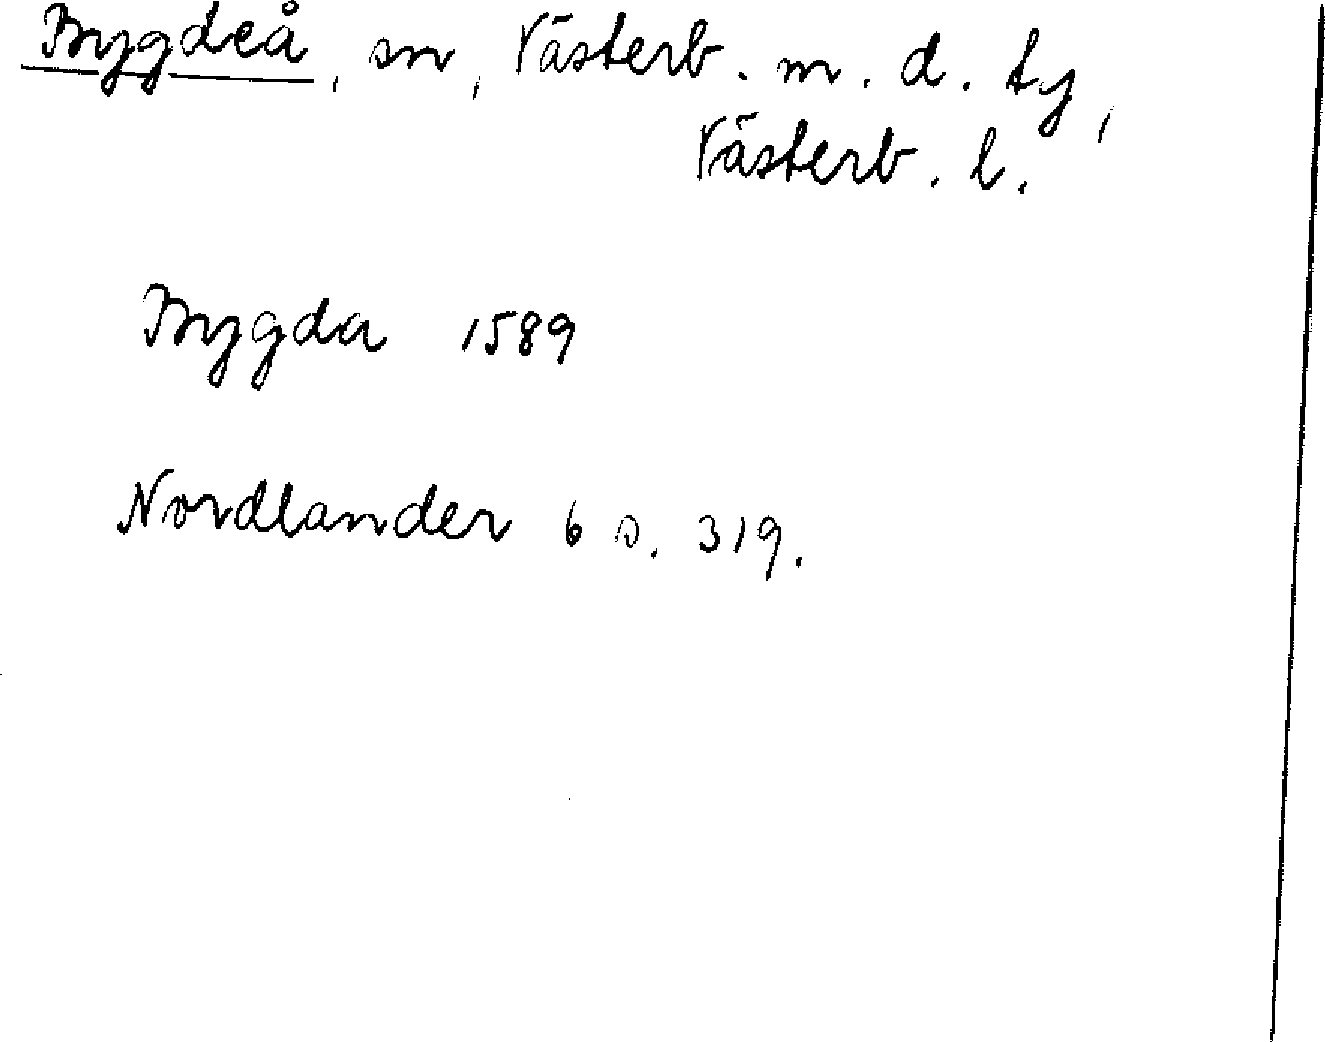 Bygdeå, sn, Västerb. m. d. ty,
Västerb. l.
Bygda 1589
Nordlander 6 s. 319.